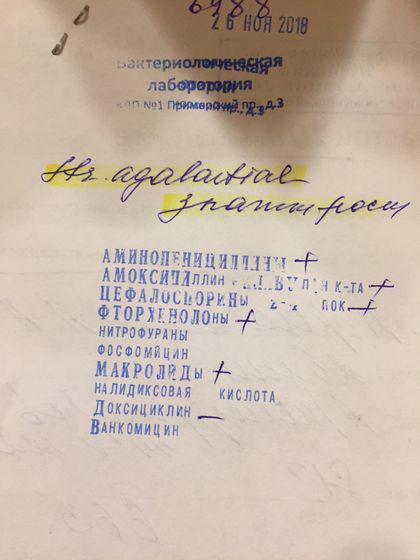 6988
26 НОЯ 2018
Бактериологическая
лаборатория
№1 Приморский пр., д.3
Str. agalactiae
значит рост
АМИНОПЕНИЦИЛЛИНЫ +
АМОКСИЦИЛЛИН К-ТА +
ЦЕФАЛОСПОРИНЫ 2-х ПОК +
ФТОРХЕНОЛОНЫ +
НИТРОФУРАНЫ
ФОСФОМИЦИН
МАКРОЛИДЫ +
НАЛИДИКСОВАЯ КИСЛОТА
ДОКСИЦИКЛИН —
ВАНКОМИЦИН